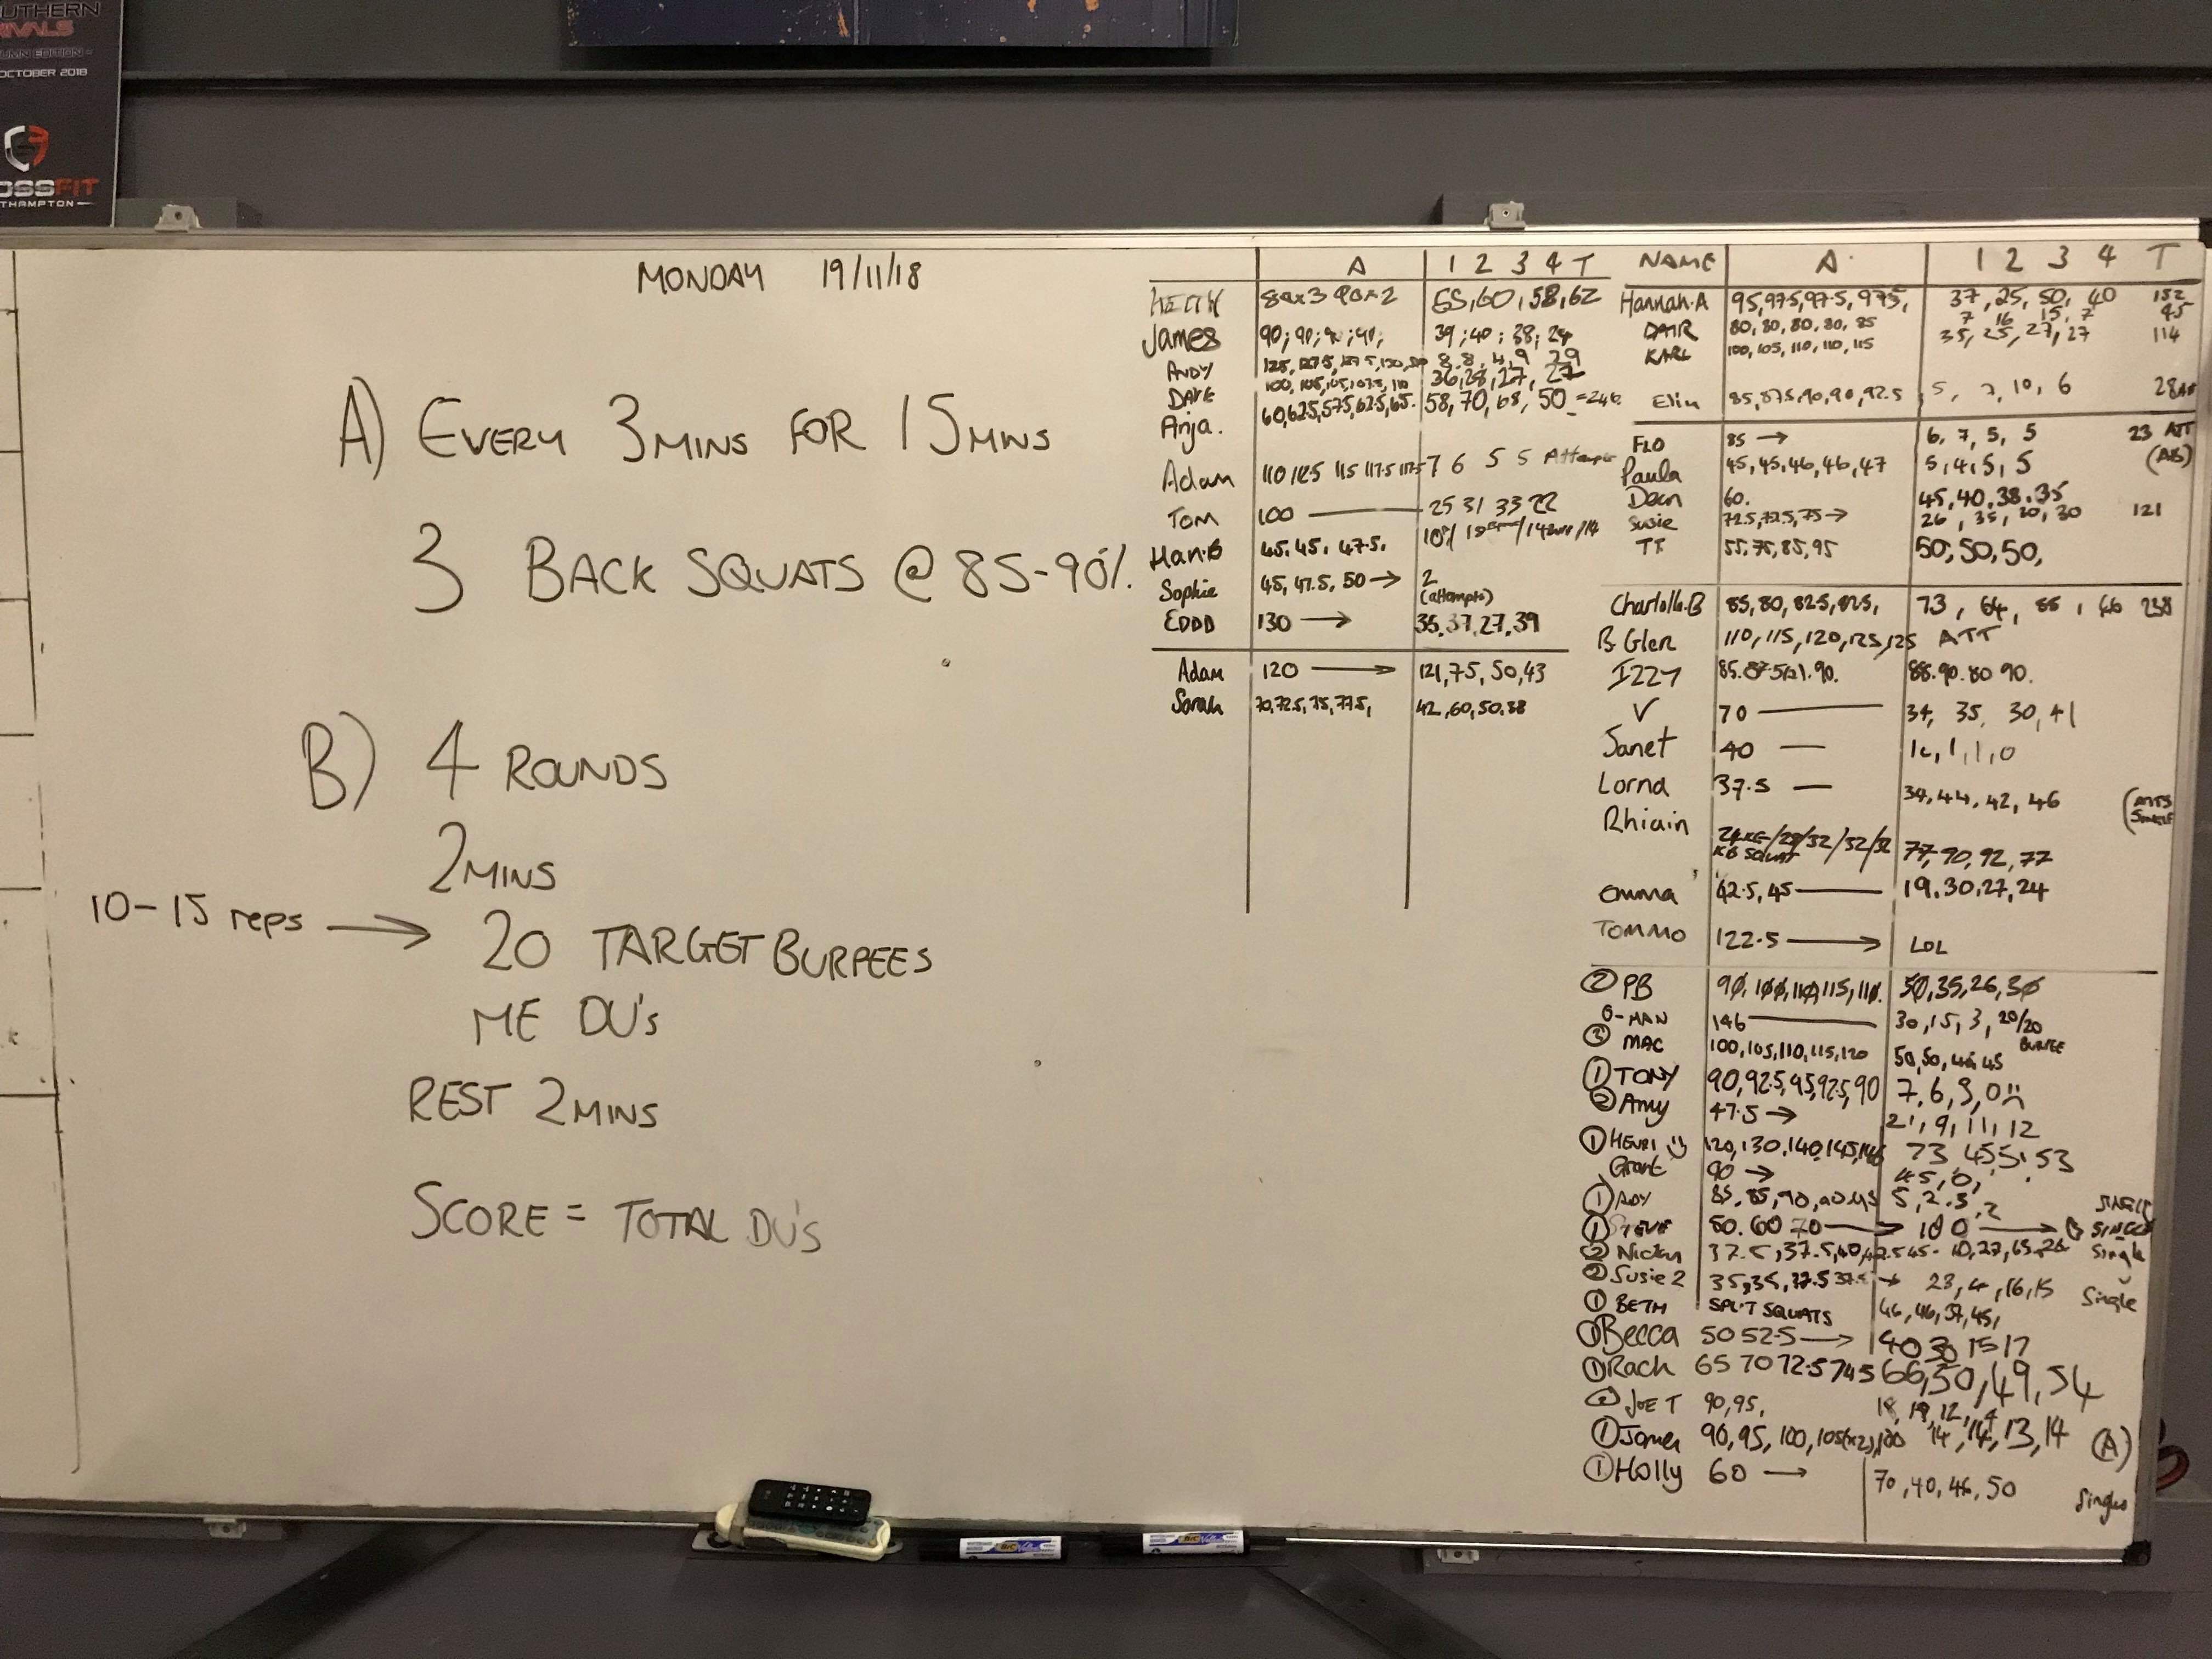 UTHERN
RIVALS
UMN EDITION -
OCTOBER 2018
OSSFIT
THAMPTON
MONDAY 19/11/18
A) EVERY 3MINS FOR 15MINS
3 BACK SQUATS @ 85-90%.
B) 4 ROUNDS
2MINS
10-15 reps → 20 TARGET BURPEES
ME DU's
REST 2MINS
SCORE = TOTAL DU'S
A 1 2 3 4 T
James 90; 90; 39; 40;
ANDY 8, 8, 4, 9 29
DAVE 36, 28, 27, 27
Anja. 60, 62.5, 57.5, 62.5, 65. 58, 70, 68, 50 =246
Adam 110 112.5 115 117.5 117.5 7 6 5 5 Attempts
TOM 100 25 31 33 22
Han.B 45, 45, 47.5,
Sophie 45, 47.5, 50 → 2 (attempts)
EDDD 130 → 35, 37, 27, 39
Adam 120 → 121, 75, 50, 43
Sarah 70, 72.5, 75, 77.5, 42, 60, 50, 38
NAME A 1 2 3 4 T
Hannah.A 95, 97.5, 97.5, 97.5, 37, 25, 50, 40 152
80, 80, 80, 80, 85 7 16 15, 7 45
KARL 100, 105, 110, 110, 115 35, 25, 27, 27 114
Elin 85, 87.5, 90, 90, 92.5 5, 10, 6
FLO 85 → 6, 7, 5, 5 23 ATT
Paula 45, 45, 46, 46, 47 5, 4, 5, 5
Dean 60. 45, 40, 38, 35
Susie 72.5, 72.5, 75 → 26, 35, 30, 30 121
TT 55, 75, 85, 95 50, 50, 50,
Charlotte.B 85, 80, 82.5, 82.5, 73, 64,
B. Glen 110, 115, 120, 125, 125 ATT
IZZY 88. 90. 80 90.
V 70 34, 35, 30, 41
Janet 40 — 1, 1, 0
Lorna 37.5 — 34, 44, 42, 46
Rhiain KB SQUAT 77, 90, 92, 77
emma 42.5, 45 19, 30, 27, 24
TOMMO 122.5 → LOL
② PB 50, 35, 26, 30
G-MAN 146 30, 15, 3, 20/20 BURPEE
③ MAC 100, 105, 110, 115, 120 50, 50, 46, 45
① TONY 90, 92.5, 95, 92.5, 90 7, 6, 3, 0
② Amy 47.5 → 21, 9, 11, 12
① HENRI 120, 130, 140, 145, 146 73
Grant 90 →
① ADY 5, 2, 3, 2
① STEVE 50. 60 70 → 100 → SINGLE
② 37.5, 37.5, 40, 42.5 45 Single
② Susie 2 23, 4, 16, 15 Single
① BETH SPLIT SQUATS 46, 46, 37, 45,
① Becca 50 52.5 → 40 30 15 17
① Rach 65 70 72.5 74.5 66, 50, 49, 54
② JOE T 90, 95, 18, 19, 12,
① James 90, 95, 100, 105(x2), 100 14, 14, 13, 14 (A)
① Holly 60 → 70, 40, 46, 50 Singles